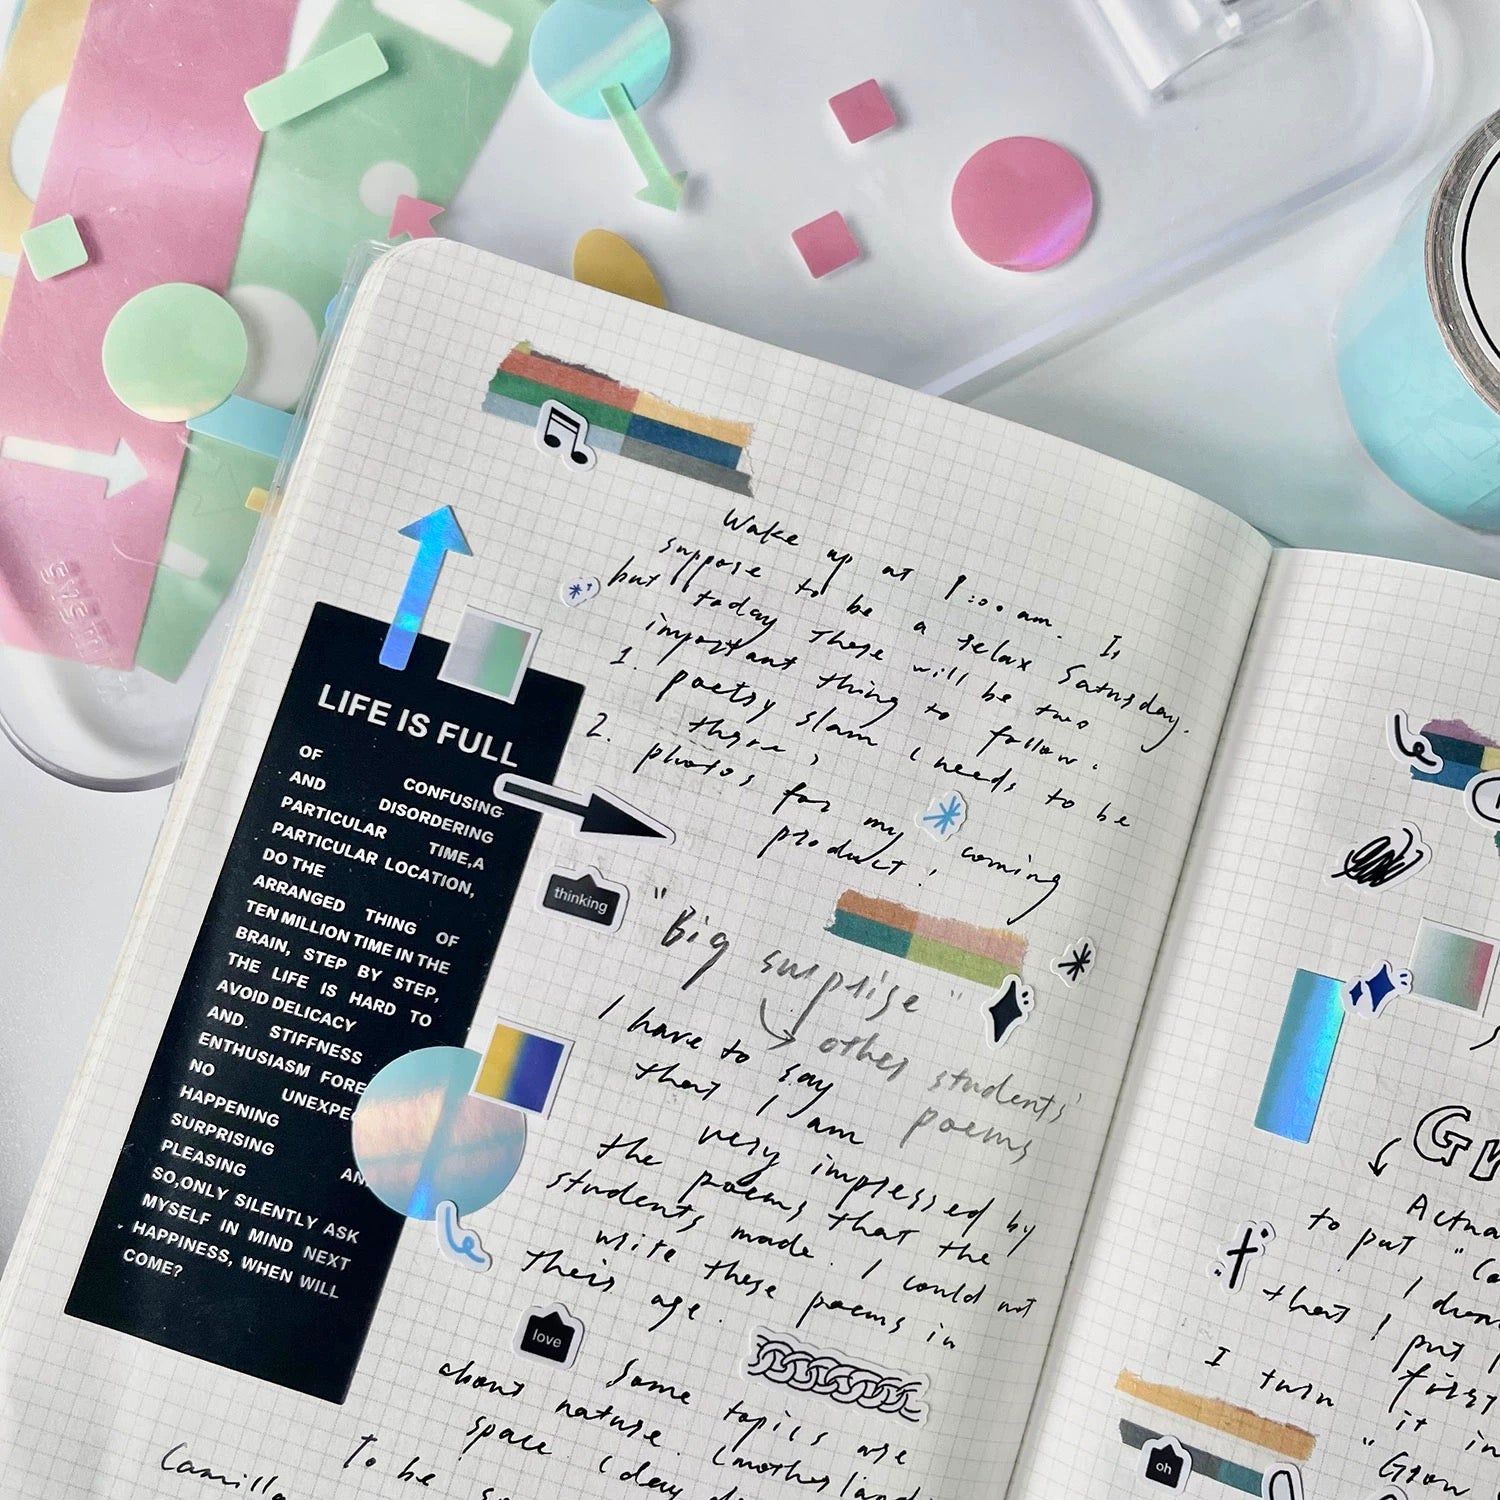 Wake up at 9:00 am. It
suppose to be a relax Saturday.
but today there will be two
important thing to follow.
1. poetry slam (needs to be
there)
2. photos for my coming
product!
LIFE IS FULL
OF CONFUSING
AND DISORDERING
PARTICULAR TIME,A
PARTICULAR LOCATION,
DO THE
ARRANGED THING OF
TEN MILLION TIME IN THE
BRAIN, STEP BY STEP,
THE LIFE IS HARD TO
AVOID DELICACY
AND. STIFFNESS
ENTHUSIASM FORE
NO UNEXPE
HAPPENING
SURPRISING
PLEASING AN
SO,ONLY SILENTLY ASK
MYSELF IN MIND NEXT
HAPPINESS, WHEN WILL
COME?
thinking
"Big surprise"
other students'
poems
I have to say
that I am
very impressed by
the poems that the
students made. I could not
write these poems in
their age.
love
Some topics are
about nature. (motherland
space (day
To be
Camilla
Actua
to put "Co
that I put
I turn first
it in
"Grow
oh